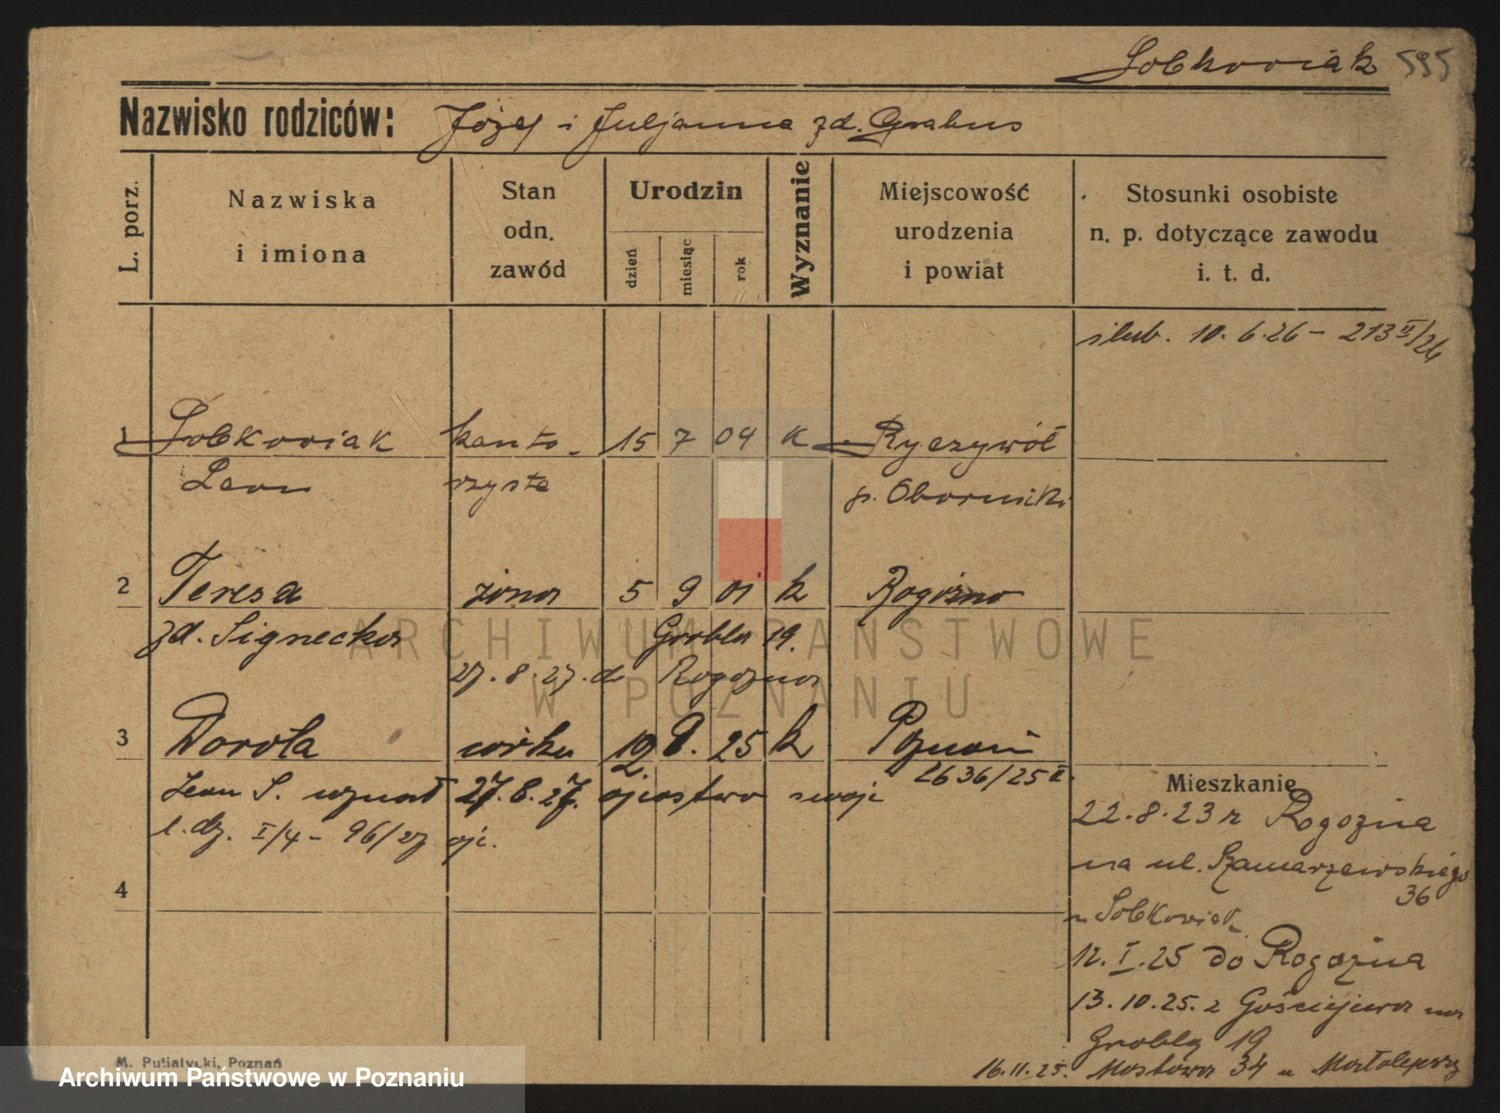 Sobkowiak 595
Nazwisko rodziców: Józef i Juljanna zd. Grabus
L. porz.
Nazwiska i imiona
Stan odn. zawód
Urodzin
dzień miesiąc rok
Wyznanie
Miejscowość urodzenia i powiat
Stosunki osobiste n. p. dotyczące zawodu i. t. d.
ślub. 10.6.26 - 213 II/26
1 Sobkowiak kanto- 15 7 04 k Ryczywół
Leon rzysta p. Oborniki
2 Teresa żona 5 9 01 k Rogoźno
zd. Signecka Grobla 19.
27.8.27. do Rogozna
3 Dorota córka 19 8. 25 k Poznań
2636/25 II
Leon S. uznał 27.8.27. ojcostwo swoje
l. dz. I/4 - 96/27
4
Mieszkanie
22.8.23 z Rogozna
na ul. Szamarzewskiego
36
u Sobkowiak
12.I.25 do Rogozna
13.10.25. z Gościejewa na
Grobla 19
16.11.25. Mostowa 34 u
M. Putiatycki, Poznań
ARCHIWUM PAŃSTWOWE
W POZNANIU
Archiwum Państwowe w Poznaniu